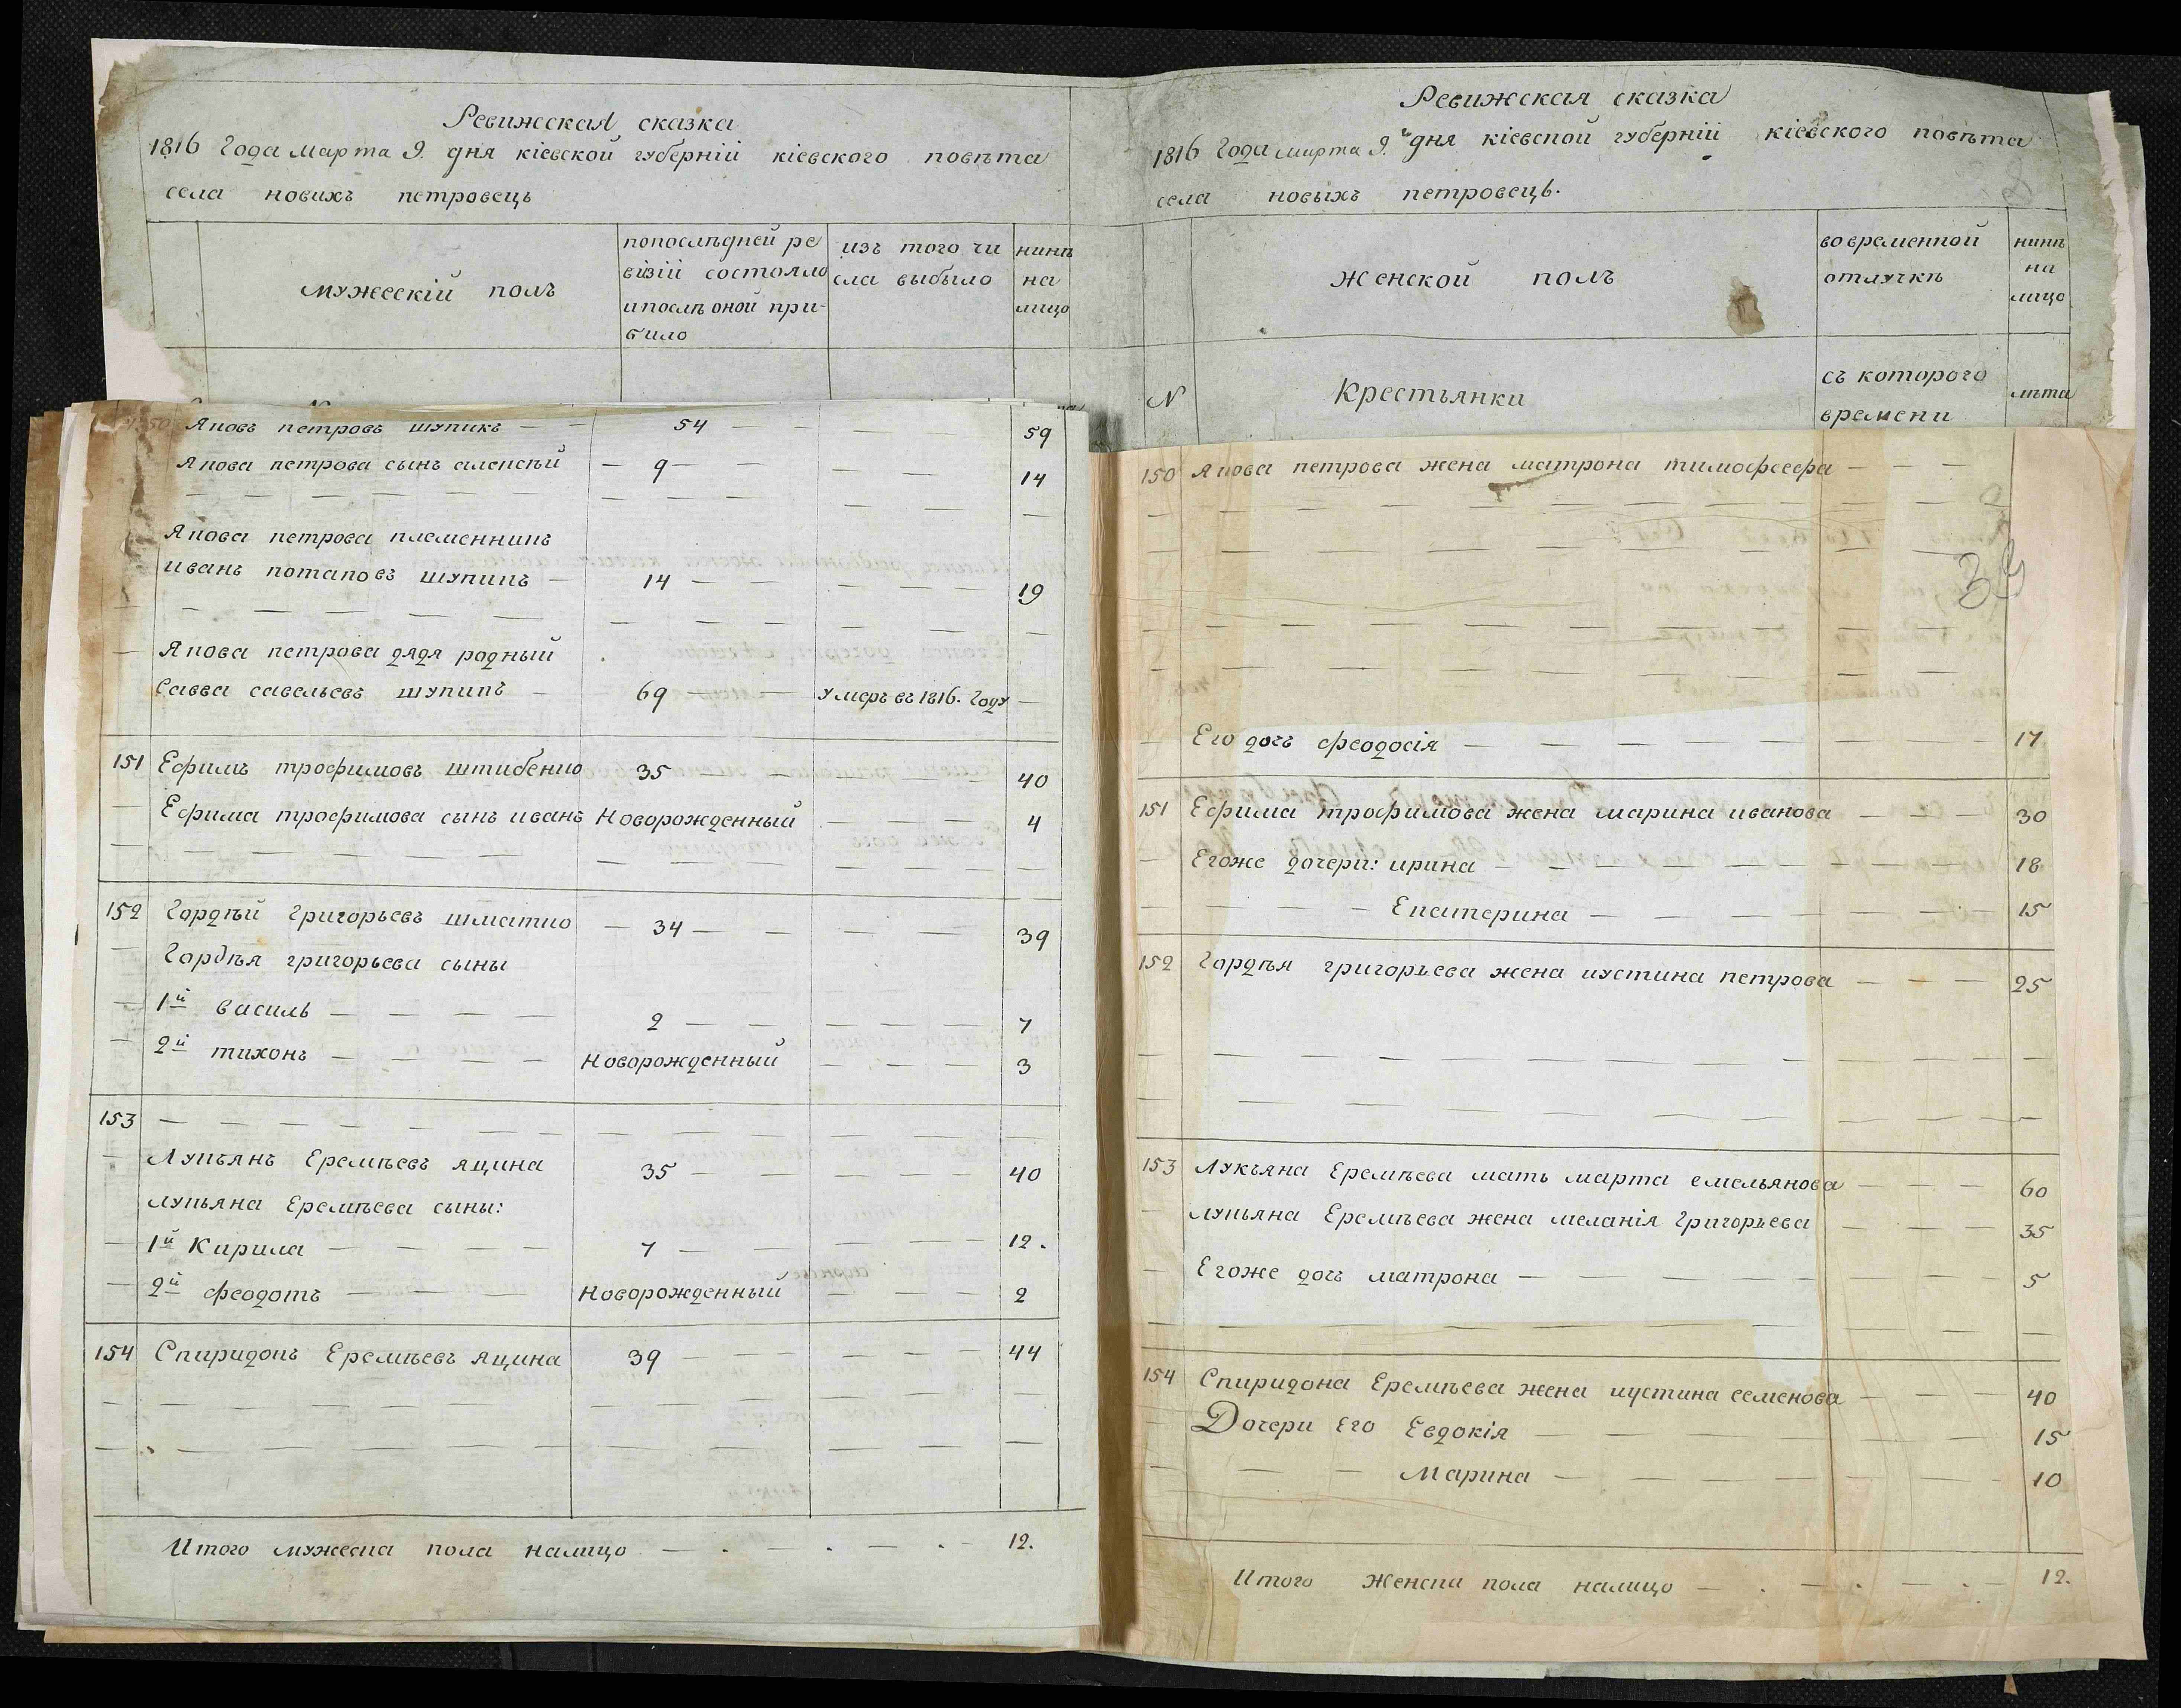 Ревижская сказка
1816 Года марта 9. дня кіевской губерніи кіевского повѣта
села новихъ петровець
мужескій полъ
попослѣдней ре
візіи состояло
ипослѣ оной при-
било
изъ того чи
сла выбыло
нинѣ
на
лицо
Яковъ петровъ шупикъ — — 54 — — — — — 59
Якова петрова сынъ алексѣй — 9 — — — — 14
Якова петрова племенникъ
иванъ потаповъ шупикъ — 14 — — — — — 19
— Якова петрова дядя родный
Савва савельевъ шупикъ — 69 — — умеръ въ 1816. Году —
151 Ефимъ трофимовъ штибенко 35 — — — — 40
— Ефима трофимова сынъ иванъ Новорожденный — — — — 4
152 Гордѣй Григорьевъ шматко — 34 — — — — 39
— Гордѣя григорьева сыны
— 1й василь — — — — 2 — — — — — — 7
— 2й тихонъ — — — — Новорожденный — — — — 3
153 — — — — — — —
— Лукъянъ Еремѣевъ яцина 35 — — — — — 40
лукьяна Еремѣева сыны:
— 1й Кирила — — — — 7 — — — — — 12.
— 2й феодотъ — — — Новорожденный — — — 2
154 Спиридонъ Еремѣевъ яцина 39 — — — — — 44
Итого мужеска пола налицо — . — . — . — 12.
Ревижская сказка
1816 Года марта 9.й дня кіевской губерніи кіевского повѣта
села новыхъ петровець.
Женской полъ
вовременной
отлучкѣ
нинѣ
на
лицо
N Крестьянки
съ которого
времени
лѣта
150 Якова петрова жена матрона тимофеефа — — —
39
— Его дочь феодосія — — — — — — — 17
151 Ефима трофимова жена марина иванова — — — 30
— Егоже дочери: ирина — — — — — — — 18
— — — — Екатерина — — — — — — 15
152 Гордѣя григорьева жена иустина петрова — — — 25
153 Лукъяна Еремѣева мать марта емельянова — — — 60
— лукьяна Еремѣева жена меланія Григорьева — — — 35
— Егоже дочь матрона — — — — — — — 5
154 Спиридона Еремѣева жена иустина семенова — — — 40
— Дочери Его Евдокія — — — — — — 15
— — — Марина — — — — — — 10
Итого Женска пола налицо — . — . — . — 12.